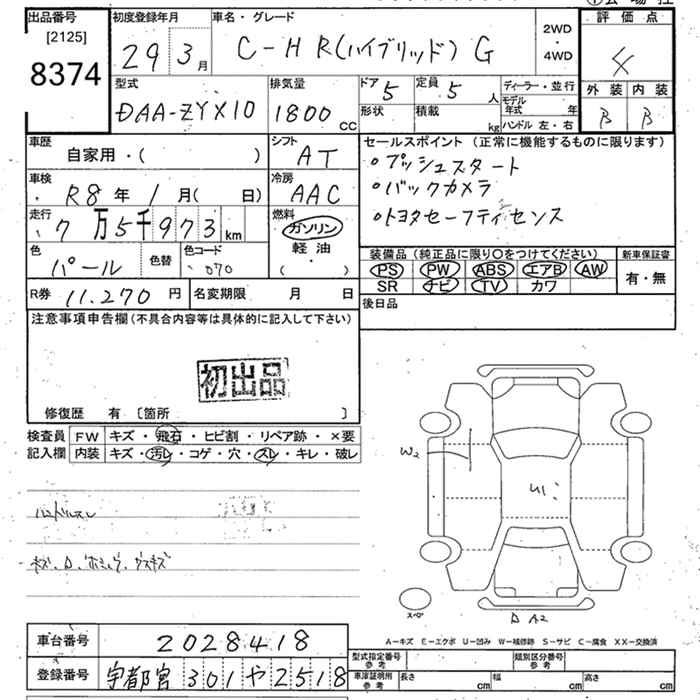 出品番号
[2125]
8374
初度登録年月
29年3月
車名・グレード
C-HR(ハイブリッド) G
2WD
・
4WD
評価点
4
外装 内装
B B
型式
DAA-ZYX10
排気量
1800 cc
ドア 5
定員 5 人
形状
積載 kg
ディーラー・並行
モデル年式 年
ハンドル 左・右
車歴
自家用・( )
シフト
AT
セールスポイント (正常に機能するものに限ります)
○プッシュスタート
○バックカメラ
○トヨタセーフティセンス
車検
R8年 1月( 日)
冷房
AAC
走行
7万5千973km
燃料
ガソリン
軽油
・
( )
色
パール
色替
色コード
070
装備品 (純正品に限り○をつけてください)
新車保証書
PS PW ABS エアB AW
SR ナビ TV カワ
有・無
R券 11.270円
名変期限 月 日
後日品
注意事項申告欄(不具合内容等は具体的に記入して下さい)
初出品
修復歴 有〔箇所 〕
検査員
記入欄
FW キズ・飛石・ヒビ割・リペア跡・×要
内装 キズ・汚レ・コゲ・穴・スレ・キレ・破レ
ハンドルスレ
W2
U1
スペア
A2
A-キズ E-エクボ U-凹み W-補修跡 S-サビ C-腐食 XX-交換済
車台番号 2028418
登録番号 宇都宮 301 や 2518
型式指定番号
参考
類別区分番号
参考
車庫証明用
参考
長さ cm 幅 cm 高さ cm